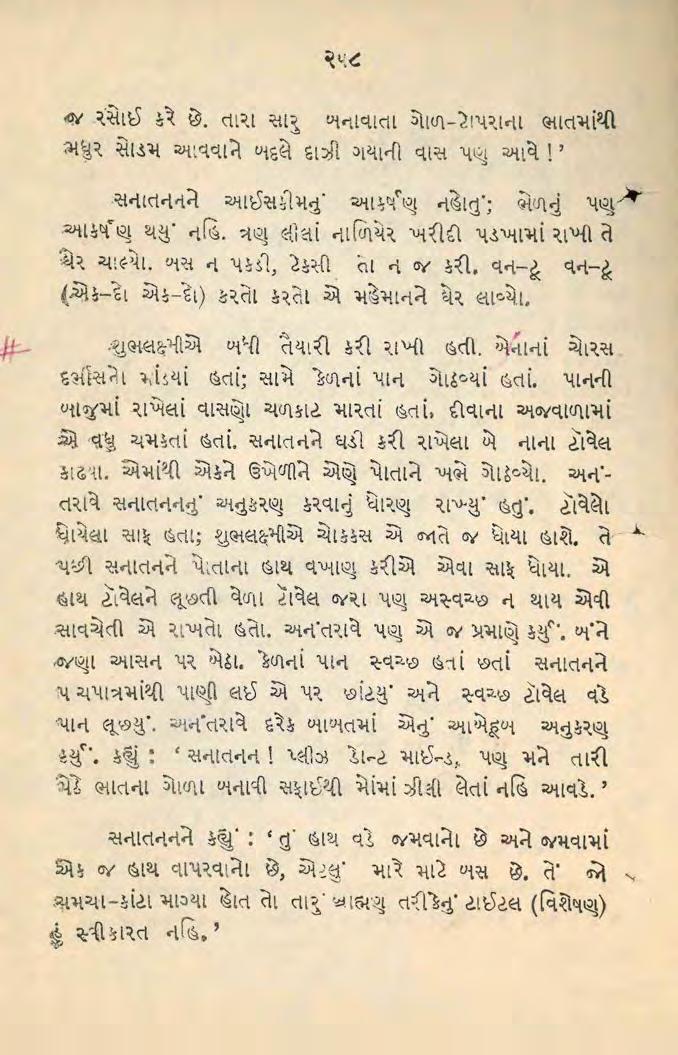 ૨૫૮
જ રસોઈ કરે છે. તારા સારુ બનાવાતા ગોળ-ટોપરાના ભાતમાંથી
મધુર સોડમ આવવાને બદલે દાઝી ગયાની વાસ પણ આવે !’
સનાતનનને આઈસક્રીમનું આકર્ષણ નહોતું; ભેળનું પણ
આકર્ષણ થયું નહિ. ત્રણ લીલાં નાળિયેર ખરીદી પડખામાં રાખી તે
ઘેર ચાલ્યો. બસ ન પકડી, ટેકસી તો ન જ કરી. વન-ટૂ વન-ટૂ
(એક-દો એક-દો) કરતો કરતો એ મહેમાનને ઘેર લાવ્યો.
શુભલક્ષ્મીએ બધી તૈયારી કરી રાખી હતી. એનાનાં ચોરસ
દર્ભાસનો માંડયાં હતાં; સામે કેળનાં પાન ગોઠવ્યાં હતાં. પાનની
બાજુમાં રાખેલાં વાસણો ચળકાટ મારતાં હતાં. દીવાના અજવાળામાં
એ વધુ ચમકતાં હતાં. સનાતનને ઘડી કરી રાખેલા બે નાના ટૉવેલ
કાઢયા. એમાંથી એકને ઉખેળીને એણે પોતાને ખભે ગોઠવ્યો. અનં-
તરાવે સનાતનનનું અનુકરણ કરવાનું ધોરણ રાખ્યું હતું. ટૉવેલો
ધોયેલા સાફ હતા; શુભલક્ષ્મીએ ચોકકસ એ જાતે જ ધોયા હાશે. તે
પછી સનાતનને પોતાના હાથ વખાણ કરીએ એવા સાફ ધોયા. એ
હાથ ટૉવેલને લૂછતી વેળા ટૉવેલ જરા પણ અસ્વચ્છ ન થાય એવી
સાવચેતી એ રાખતો હતો. અનંતરાવે પણ એ જ પ્રમાણે કર્યું. બંને
જણા આસન પર બેઠા. કેળનાં પાન સ્વચ્છ હતાં છતાં સનાતનને
પંચપાત્રમાંથી પાણી લઈ એ પર છાંટયું અને સ્વચ્છ ટૉવેલ વડે
પાન લૂછયું. અનંતરાવે દરેક બાબતમાં એનું આબેહૂબ અનુકરણ
કર્યું. કહ્યું : ‘ સનાતનન ! પ્લીઝ ડોન્ટ માઈન્ડ, પણ મને તારી
પેઠે ભાતના ગોળા બનાવી સફાઈથી મોંમાં ઝીલી લેતાં નહિ આવડે.’
સનાતનનને કહ્યું : ‘ તું હાથ વડે જમવાનો છે અને જમવામાં
એક જ હાથ વાપરવાનો છે, એટલું મારે માટે બસ છે. તેં જો
ચમચા-કાંટા માગ્યા હોત તો તારું બ્રાહ્મણ તરીકેનું ટાઈટલ (વિશેષણ)
હું સ્વીકારત નહિ.’